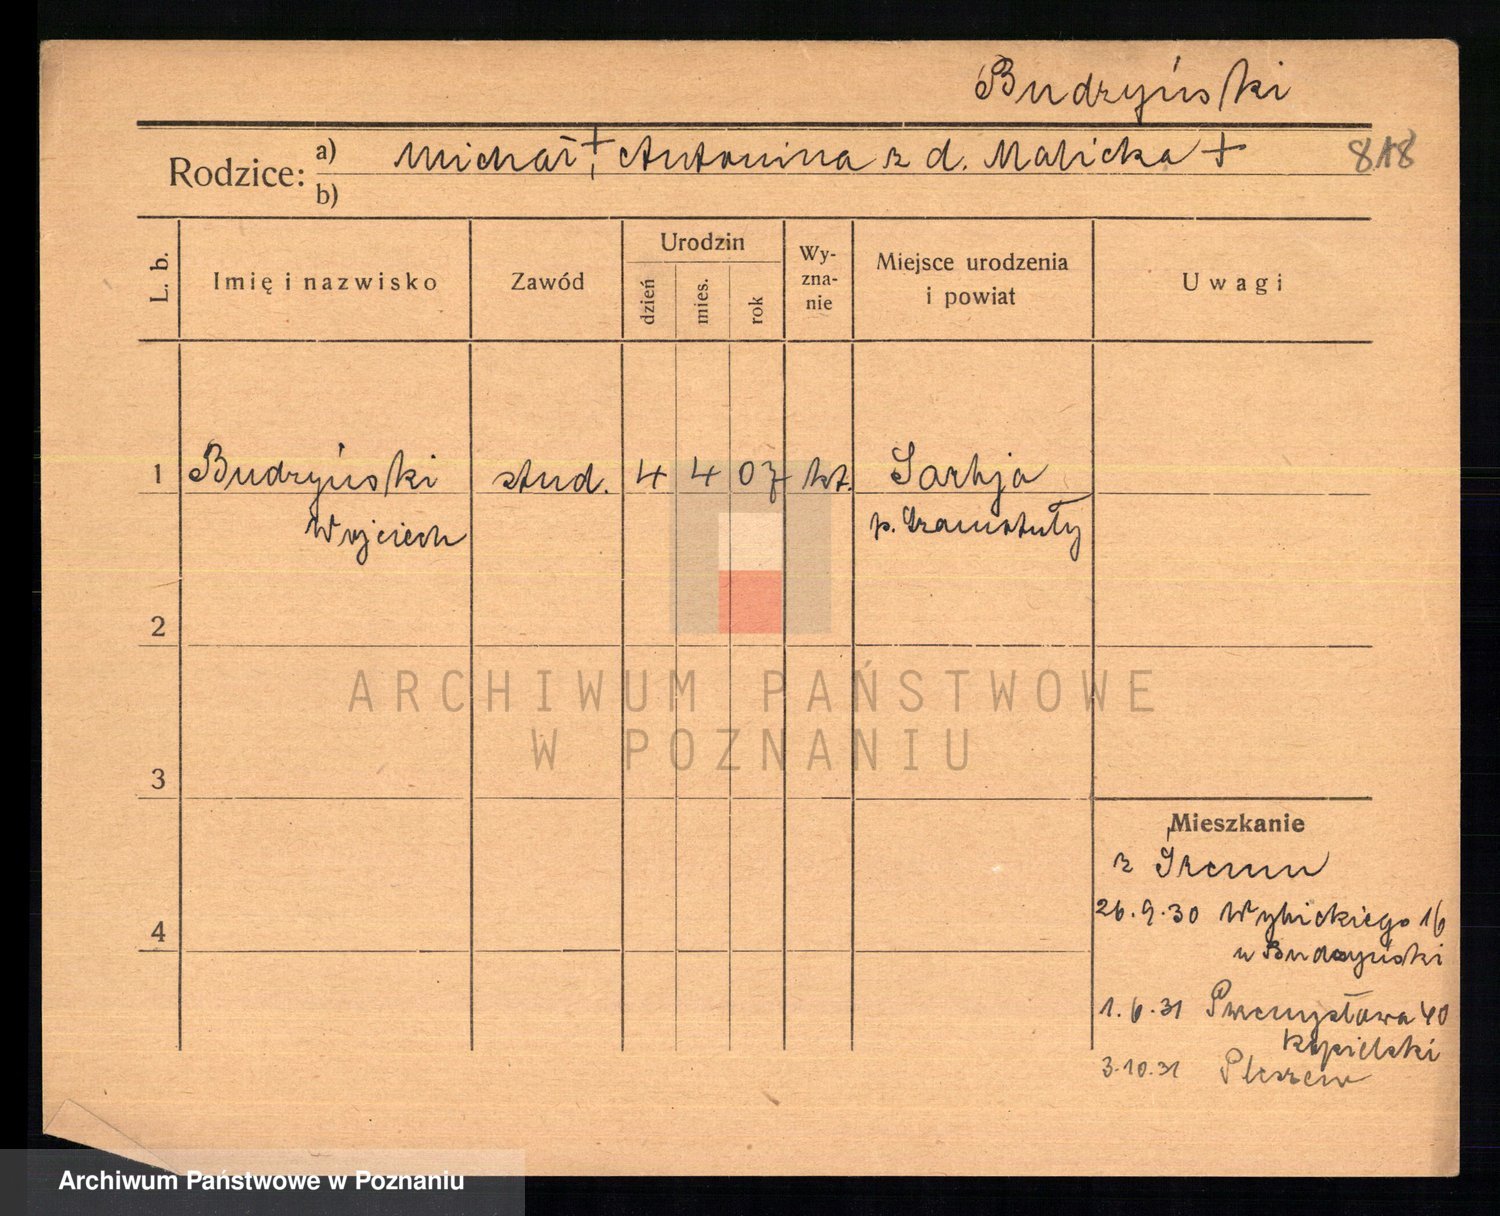 Budzyński
Rodzice:
a) Michał +, Antonina z d. Malicka +
b)
818
L. b.
Imię i nazwisko
Zawód
Urodzin
dzień
mies.
rok
Wy-
zna-
nie
Miejsce urodzenia
i powiat
Uwagi
1 Budzyński stud. 4 4 07 kt. Sarbja
Wojciech p. Szamotuły
2
ARCHIWUM PAŃSTWOWE
W POZNANIU
3
Mieszkanie
z Śremu
26.9.30 Wybickiego 16
u Budzyński
4
1.6.31 Przemysłowa 40
3.10.31 Pleszew
Archiwum Państwowe w Poznaniu